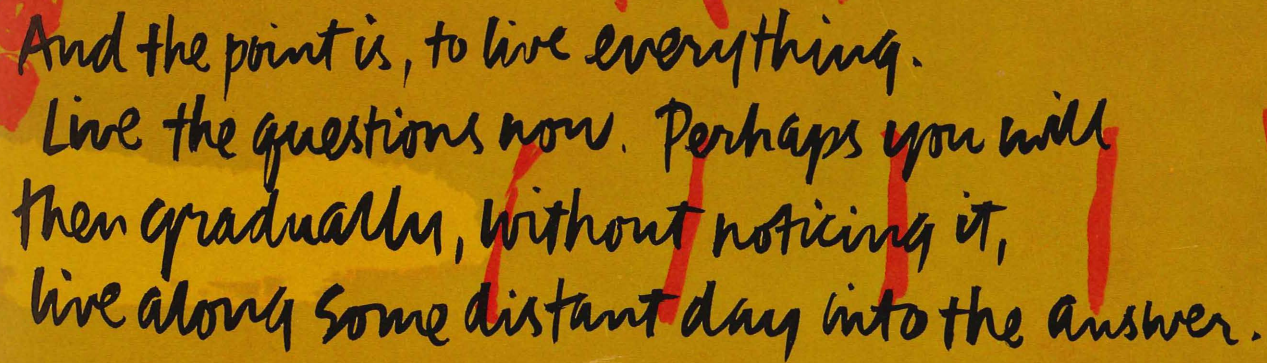 And the point is, to live everything.
Live the questions now. Perhaps you will
then gradually, without noticing it,
live along some distant day into the answer.